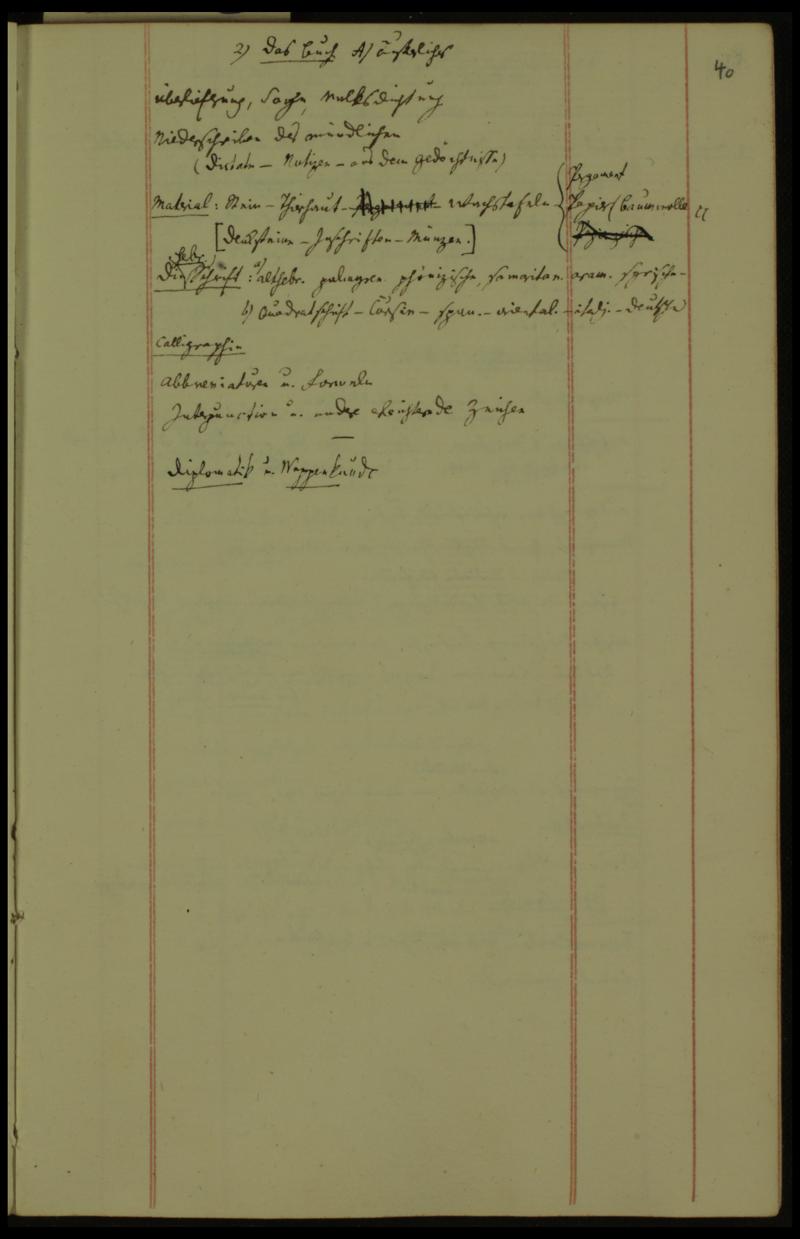 40
2) Das Buch A) äußerliches
Überlieferung, Sage, Volksdichtung
Niederschreiben des mündlichen
(Dictate – Notizen – aus dem Gedächtnisse)
Material: Stein – Thierhaut – Wachstafeln – { Pergament
Papier (Baumwolle
[Denksteine – Inschriften – Münzen.]
Die hebr. Schrift: a) althebr. palmyren. phönizische, samaritan. aram. syrische –
b) Quadratschrift – Cursiv – span. – oriental. – italj. – deutsche
Calligraphie
Abbreviaturen u. Formeln
Interpunction u. andere erleichternde Zeichen
Diplomatik u. Wappenkunde